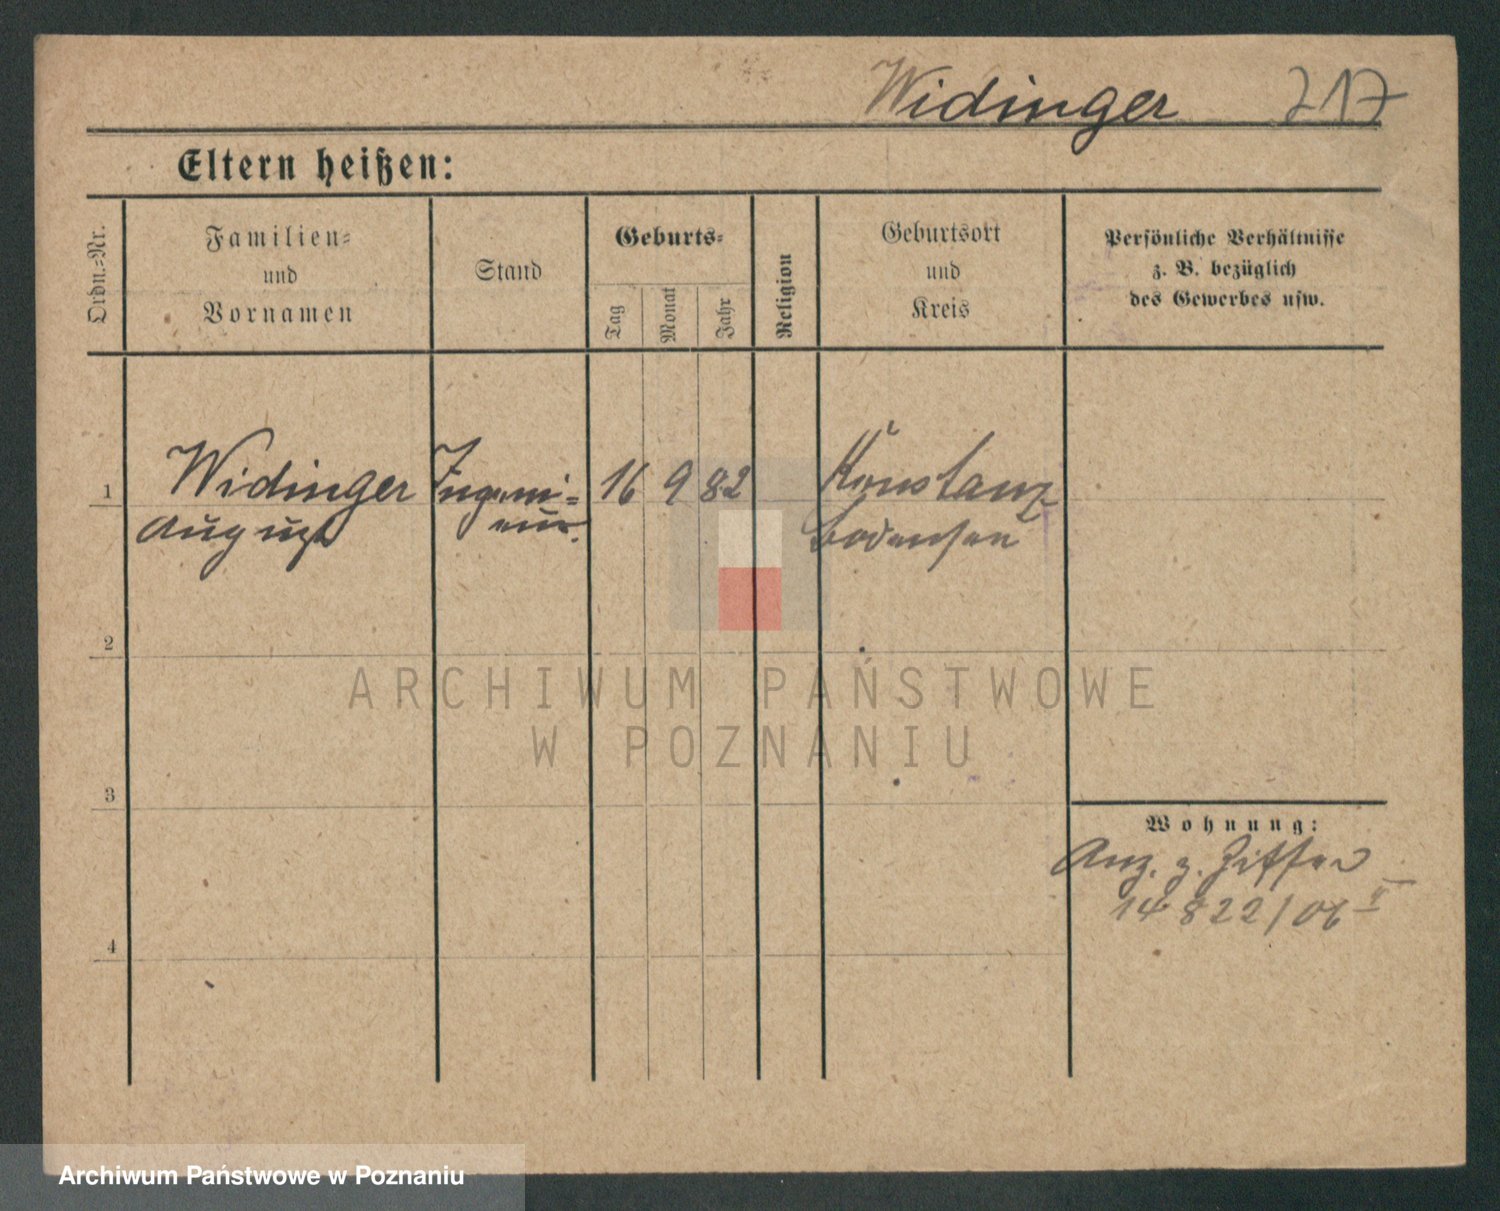 Widinger 217
Eltern heißen:
Ordn.-Nr.
Familien-
und
Vornamen
Stand
Geburts-
Tag
Monat
Jahr
Religion
Geburtsort
und
Kreis
Persönliche Verhältnisse
z. B. bezüglich
des Gewerbes usw.
1 Widinger Ingeni= 16 9 82 Konstanz
August eur. Bodensee
2
ARCHIWUM PAŃSTWOWE
W POZNANIU
3
Wohnung:
Anz. z. Ziffer
14822/06 II
4
Archiwum Państwowe w Poznaniu